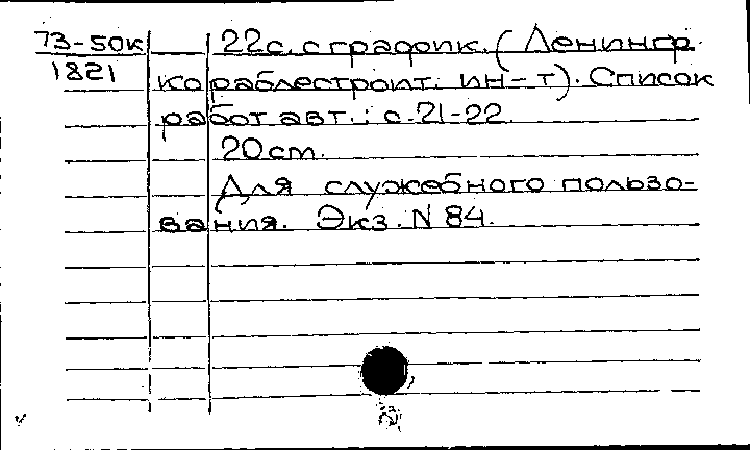 73-50к 22с. с график. (Ленингр.
1821 кораблестроит. ин-т). Список
работ авт.: с.21-22.
20см.
Для служебного пользо-
вания. Экз. N 84.